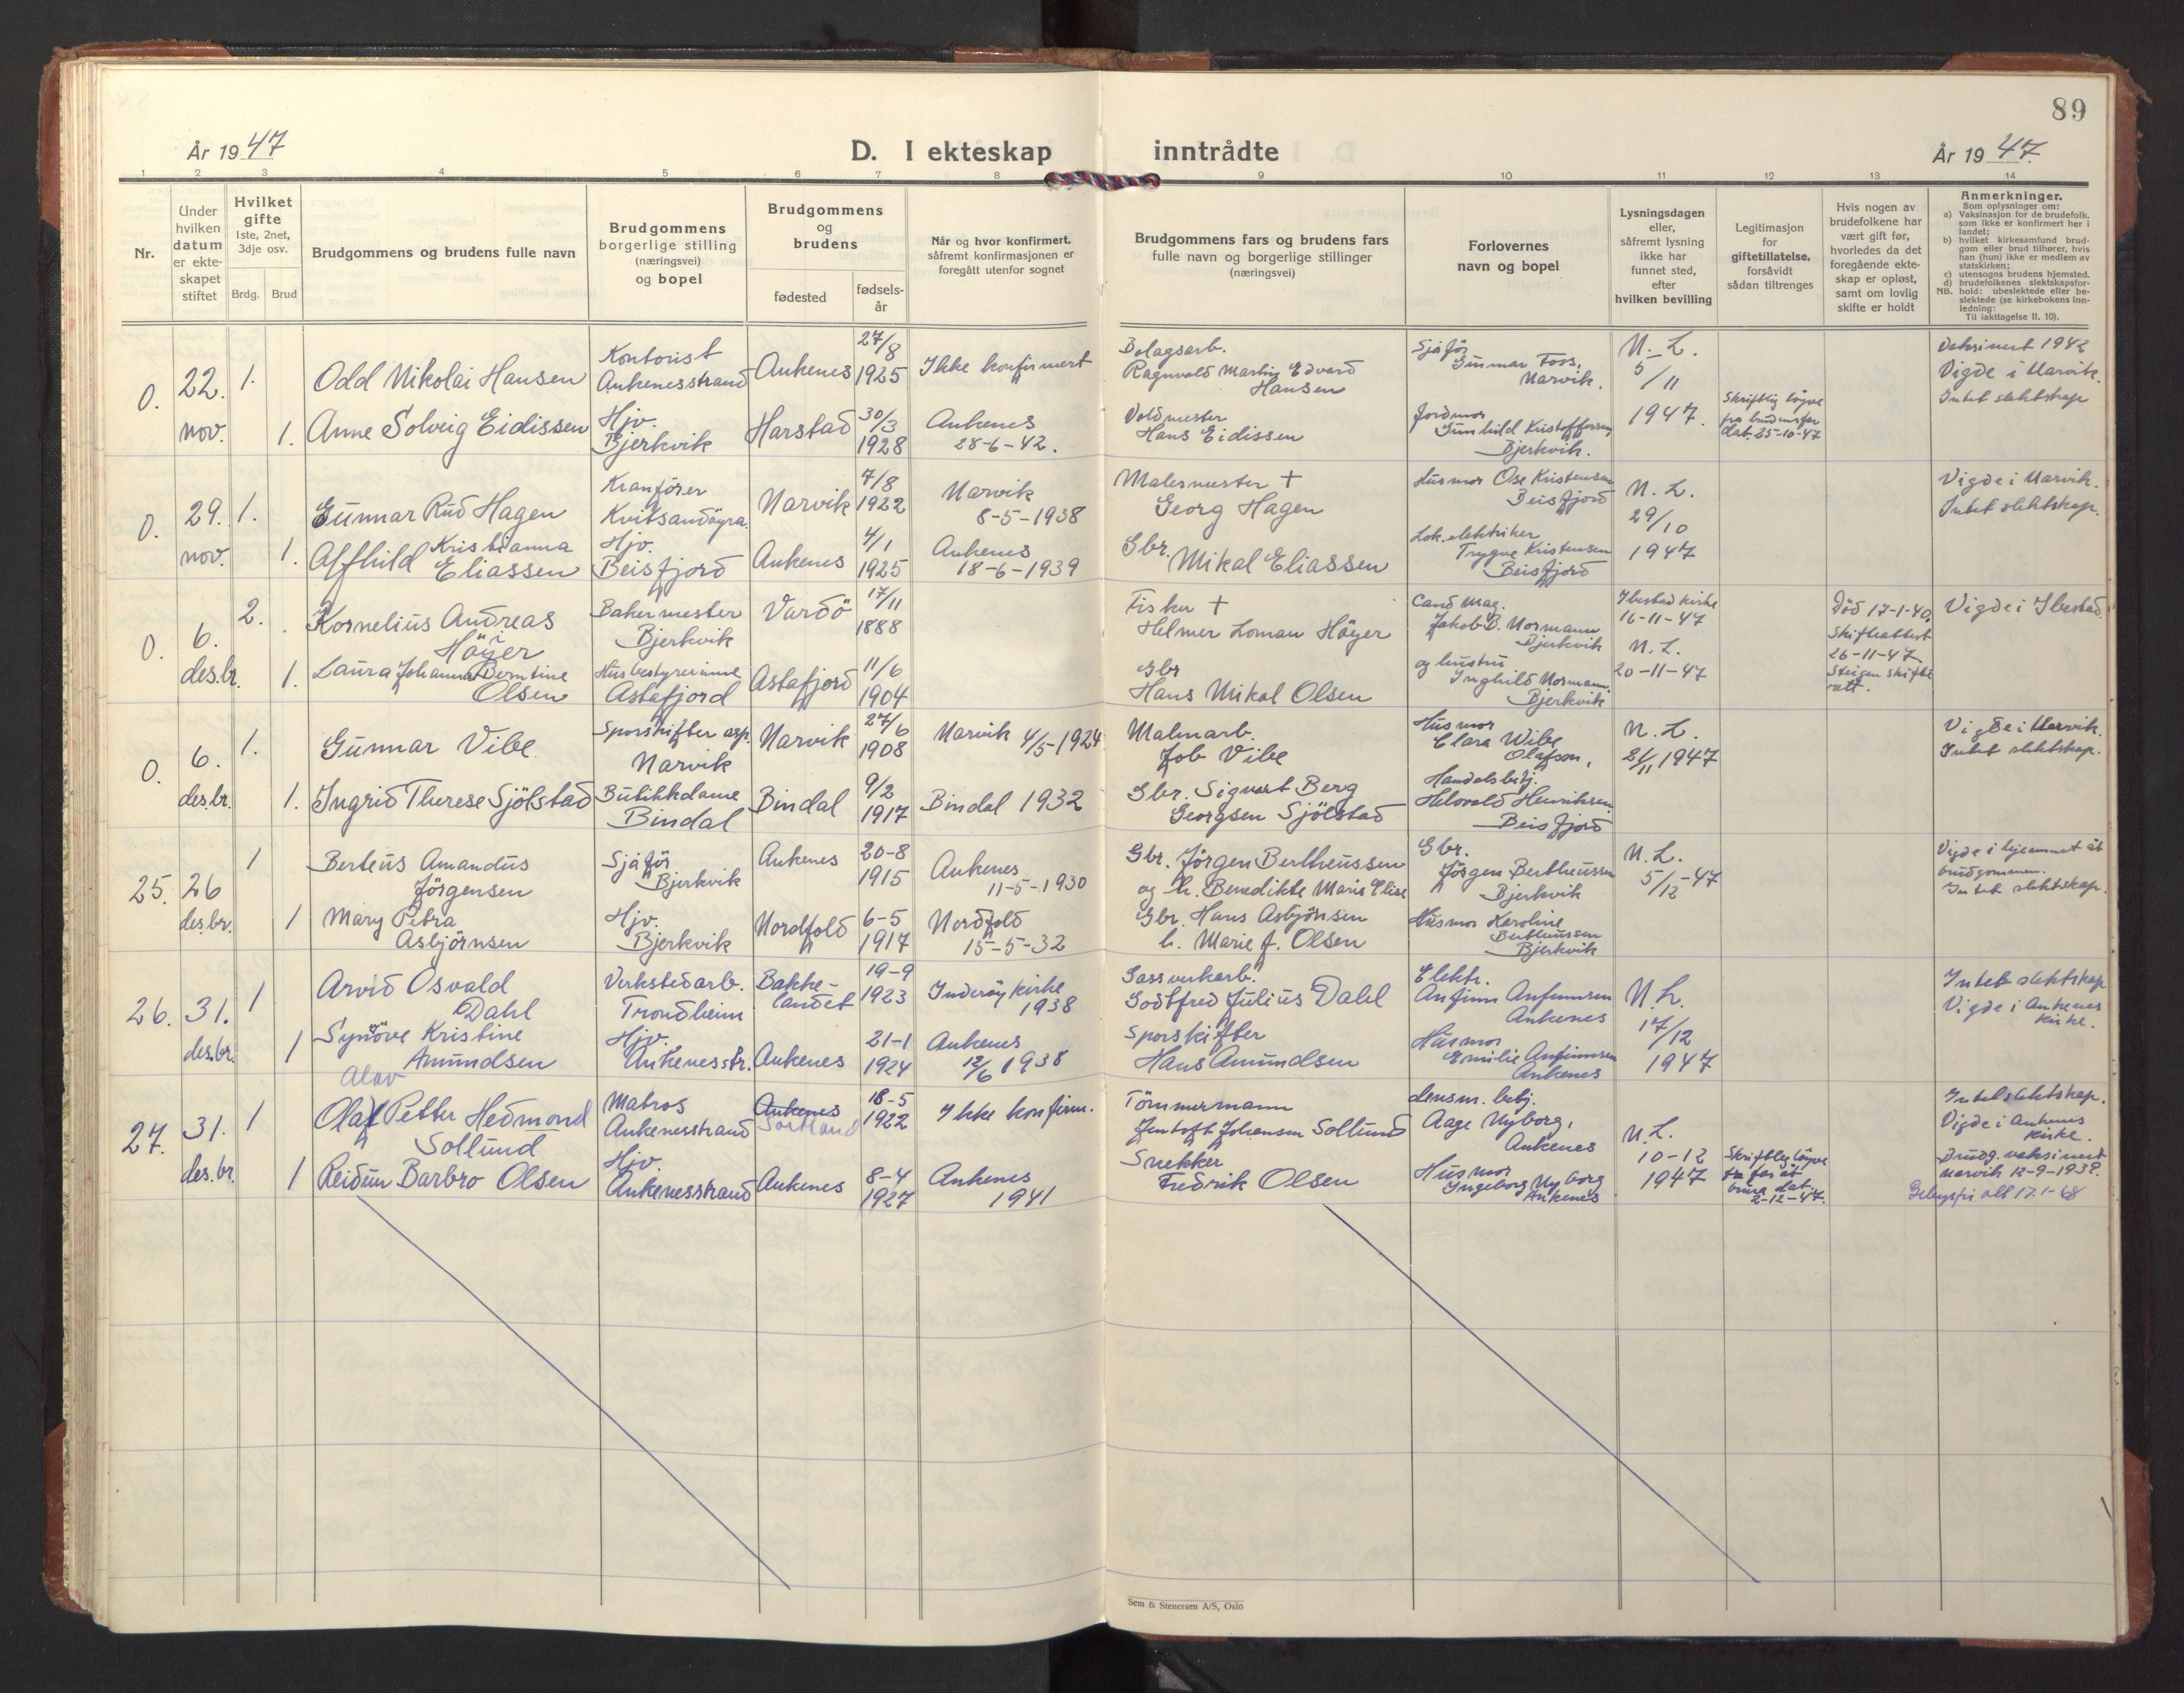 89
År 1947
D. I ekteskap inntrådte
År 1947.
1 2 3 4 5 6 7 8 9 10 11 12 13 14
Nr.
Under
hvilken
datum
er ekte-
skapet
stiftet
Hvilket
gifte
1ste, 2net,
3dje osv.
Brdg. Brud
Brudgommens og brudens fulle navn
Brudgommens
borgerlige stilling
(næringsvei)
og bopel
Brudgommens
og
brudens
fødested
fødsels-
år
Når og hvor konfirmert,
såfremt konfirmasjonen er
foregått utenfor sognet
Brudgommens fars og brudens fars
fulle navn og borgerlige stillinger
(næringsvei)
Forlovernes
navn og bopel
Lysningsdagen
eller,
såfremt lysning
ikke har
funnet sted,
efter
hvilken bevilling
Legitimasjon
for
giftetillatelse,
forsåvidt
sådan tiltrenges
Hvis nogen av
brudefolkene har
vært gift før,
hvorledes da det
foregående ekte-
skap er opløst,
samt om lovlig
skifte er holdt
Anmerkninger.
Som oplysninger om:
a) Vaksinasjon for de brudefolk,
som ikke er konfirmert her i
landet;
b) hvilket kirkesamfund brud-
gom eller brud tilhører, hvis
han (hun) ikke er medlem av
statskirken;
c) utensogns brudens hjemsted.
d) brudefolkenes slektskapsfor-
NB. hold: ubeslektede eller be-
slektede (se kirkebokens Inn-
ledning:
Til iakttagelse II. 10).
0. 22. nov.
1.
Odd Nikolai Hansen
Kontorist
Ankenesstrand
Ankenes
27/8
1925
Ikke konfirmert
Bolagsarb.
Ragnvald Martin Edvard
Hansen
Sjåfør
Gunnar Foss,
Narvik.
N. L.
5/11
1947.
Vaksinert 1942
Vigde i Narvik.
Intet slektskap
1.
Anne Solveig Eidissen
Hjv.
Bjerkvik
Harstad
30/3
1928
Ankenes
28-6-42.
Hans Eidissen
Jordmor
Gunhild Kristoffersen
Bjerkvik.
Skriftlig løyve
dat. 25-10-47
0. 29. nov.
1.
Gunnar Rud Hagen
Kranfører
Kvitsandøyra.
Narvik
7/8
1922
Narvik
8-5-1938
Malermester +
Georg Hagen
Husmor Ose Kristensen
Beisfjord
N. L.
29/10
1947
Vigde i Narvik.
Intet slektskap.
1.
Alfhild Kristianna
Eliassen
Hjv.
Beisfjord
Ankenes
4/1
1925
Ankenes
18-6-1939
Gbr.
Mikal Eliassen
Lok.elektriker
Trygve Kristensen
Beisfjord
0. 6. des.br.
2.
Kornelius Andreas
Höyer
Bakermester
Bjerkvik
Vardö
17/11
1888
Fisker +
Helmer Loman Höyer
Cand Mag.
Jakob B. Normann
Bjerkvik
Ibestad kirke
16-11-47
N. L.
20-11-47
Död 17-1-40.
Skifteattest
26-11-47
Steigen skifte
rett.
Vigde i Ibestad.
1.
Laura Johanna Berntine
Olsen
Husbestyrerinne
Astafjord
Astafjord
11/6
1904
Gbr
Hans Mikal Olsen
og hustru
Inghild Normann.
Bjerkvik
0. 6. des.br.
1.
Gunnar Vibe
Sporskifter asp.
Narvik
Narvik
27/6
1908
Narvik 4/5-1924
Malmarb.
Job Vibe
Husmor
Clara Wibe
Olafson,
N. L.
21/11 1947
Vigde i Narvik.
Intet slektskap.
1.
Ingrid Therese Sjölstad
Butikkdame
Bindal
Bindal
9/2
1917
Bindal 1932
Gbr. Sigvart Berg
Georgsen Sjölstad
Handelsbetj.
Henriksen
Beisfjord
25. 26 des.br.
1
Berteus Amandus
Jörgensen
Sjåför
Bjerkvik
Ankenes
20-8
1915
Ankenes
11-5-1930
Gbr. Jörgen Bertheussen
og h. Benedikte Marie Elise
Gbr.
Jörgen Bertheussen
Bjerkvik
N. L.
5/12-47
Vigde i hjemmet åt
brudgommen.
Intet slektskap.
1
Mary Petra
Asbjörnsen
Hjv.
Bjerkvik
Nordfold
6-5
1917
Nordfold
15-5-32
Gbr. Hans Asbjörnsen
h. Marie f. Olsen
Husmor Karoline
Bertheussen
Bjerkvik
26. 31. des.br.
1
Arvid Osvald
Dahl
Verkstedarb.
Trondheim
Bakke-
landet
19-9
1923
Inderøy kirke
1938
Gassverkarb.
Godtfred Julius Dahl
Elektr.
Anfinn Anfinnsen
Ankenes
N. L.
17/12
1947
Intet slektskap
Vigde i Ankenes
kirke.
1
Synöve Kristine
Amundsen
Hjv.
Ankenesstr.
Ankenes
21-1
1924
Ankenes
12/6 1938
Sporskifter
Hans Amundsen
Husmor
Emilie Anfinnsen
Ankenes
27. 31. des.br.
1
Alav
Olaf Petter Hedmond
Sollund
Matros
Ankenesstrand
Ankenes
Sortland
18-5
1922
Ikke konfirm.
Tömmermann
Jentoft Johansen Sollund
Lensm. betj.
Aage Nyborg,
Ankenes
N. L.
10-12
1947
Intet slektskap.
Vigde i Ankenes
kirke.
1
Reidun Barbro Olsen
Hjv.
Ankenesstrand
Ankenes
8-4
1927
Ankenes
1941
Snekker
Fredrik Olsen
Husmor
Ingeborg Nyborg
Ankenes
Skriftleg löyve
fra far åt
brura dat.
2-12-47.
Brudg. vaksinert
Narvik 12-9-1932.
17.1-68
Sem & Stenersen A/S, Oslo